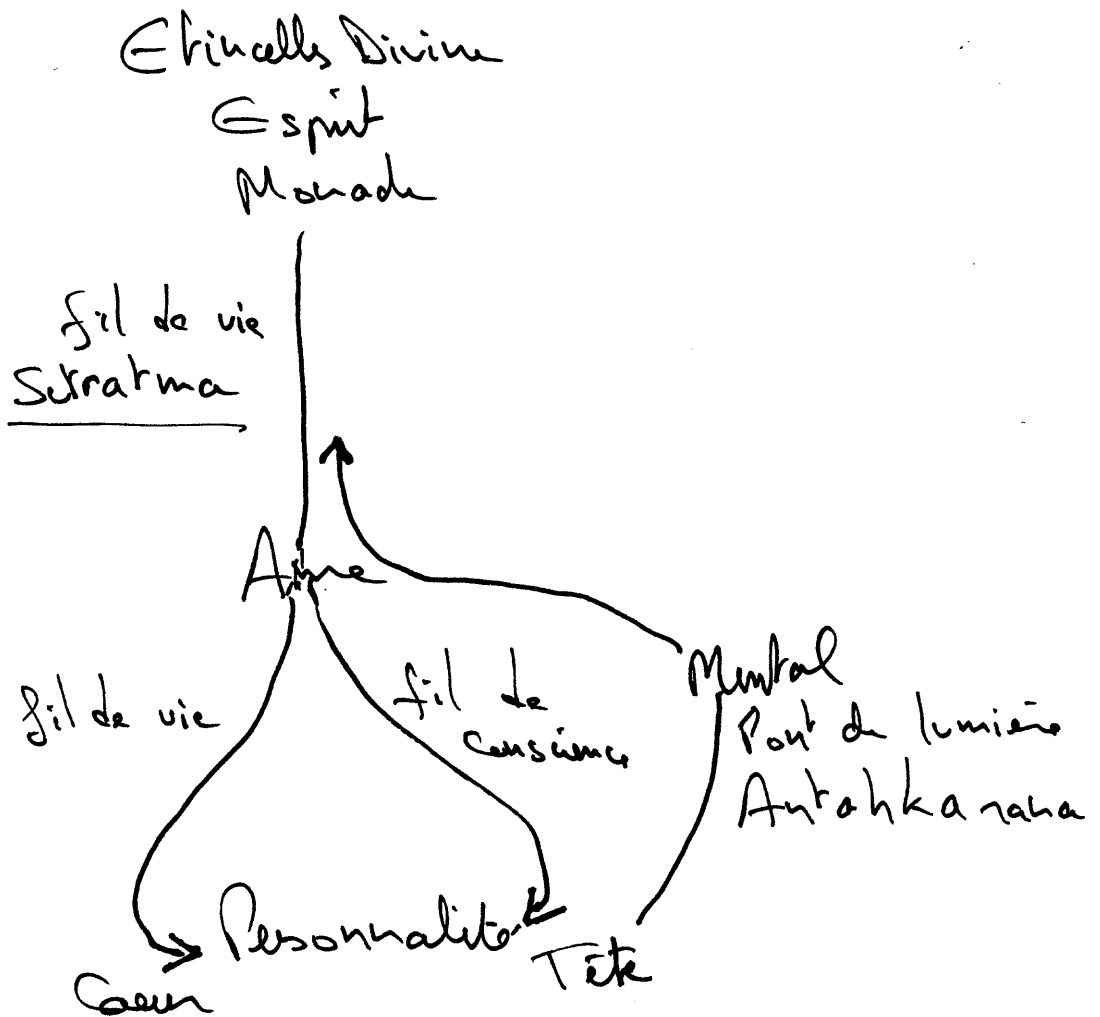 Etincelle Divine
Esprit
Monade
fil de vie
Sutratma
Ame
fil de vie
fil de
conscience
Mental
Pont de lumière
Antahkarana
Personnalité
Tête
Coeur